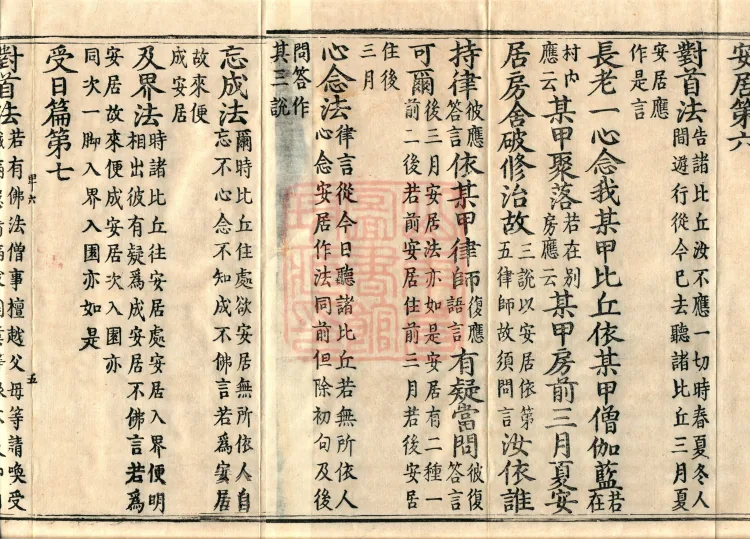 安居第六
對首法告諸比丘汝不應一切時春夏冬人間遊行從今已去聽諸比丘三月夏
安居應作是言
長老一心念我某甲比丘依某甲僧伽藍若在
村內應云某甲聚落若在別房應云某甲房前三月夏安
居房舍破修治故三說以安居依第五律師故須問言汝依誰
持律彼應答言依某甲律師復應語言有疑當問彼復答言
可爾後三月安居法亦如是安居有二種一前二後若前安居住前三月若後安居
住後三月
心念法律言從今日聽諸比丘若無所依人心念安居作法同前但除初句及後
問答作其三說
忘成法爾時比丘住處欲安居無所依人自忘不心念不知成不佛言若爲安居
故來便成安居
及界法時諸比丘往安居處安居入界便明相出彼有疑爲成安居不佛言若爲
安居故來便成安居次入園亦同次一脚入界入園亦如是
受日篇第七
甲六 五
對首法若有佛法僧事檀越父母等請喚受